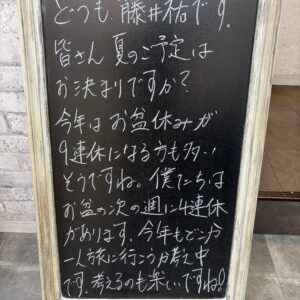 どうも、藤井祐です。
皆さん夏のご予定は
お決まりですか?
今年はお盆休みが
9連休になる方も多い
そうですね。僕たちは
お盆の次の週に4連休
があります。今年もどこか
一人旅に行こうか考え中
です。考えるのも楽しいですね!